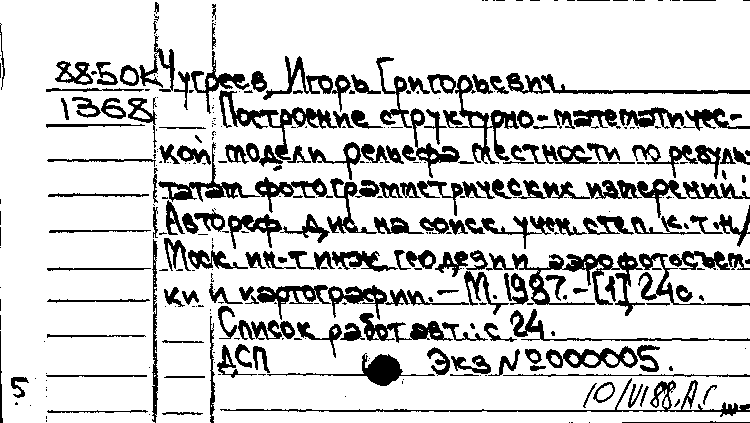 88-50К Чугреев, Игорь Григорьевич.
1368 Построение структурно-математичес-
кой модели рельефа местности по резуль-
татам фотограмметрических измерений:
Автореф. дис. на соиск. учен. степ. к.т.н./
Моск. ин-т инж. геодезии, аэрофотосъем-
ки и картографии. – М., 1987. – [1], 24с.
Список работ авт.: с. 24.
ДСП Экз №000005.
5
10/VI 88. А.Г.